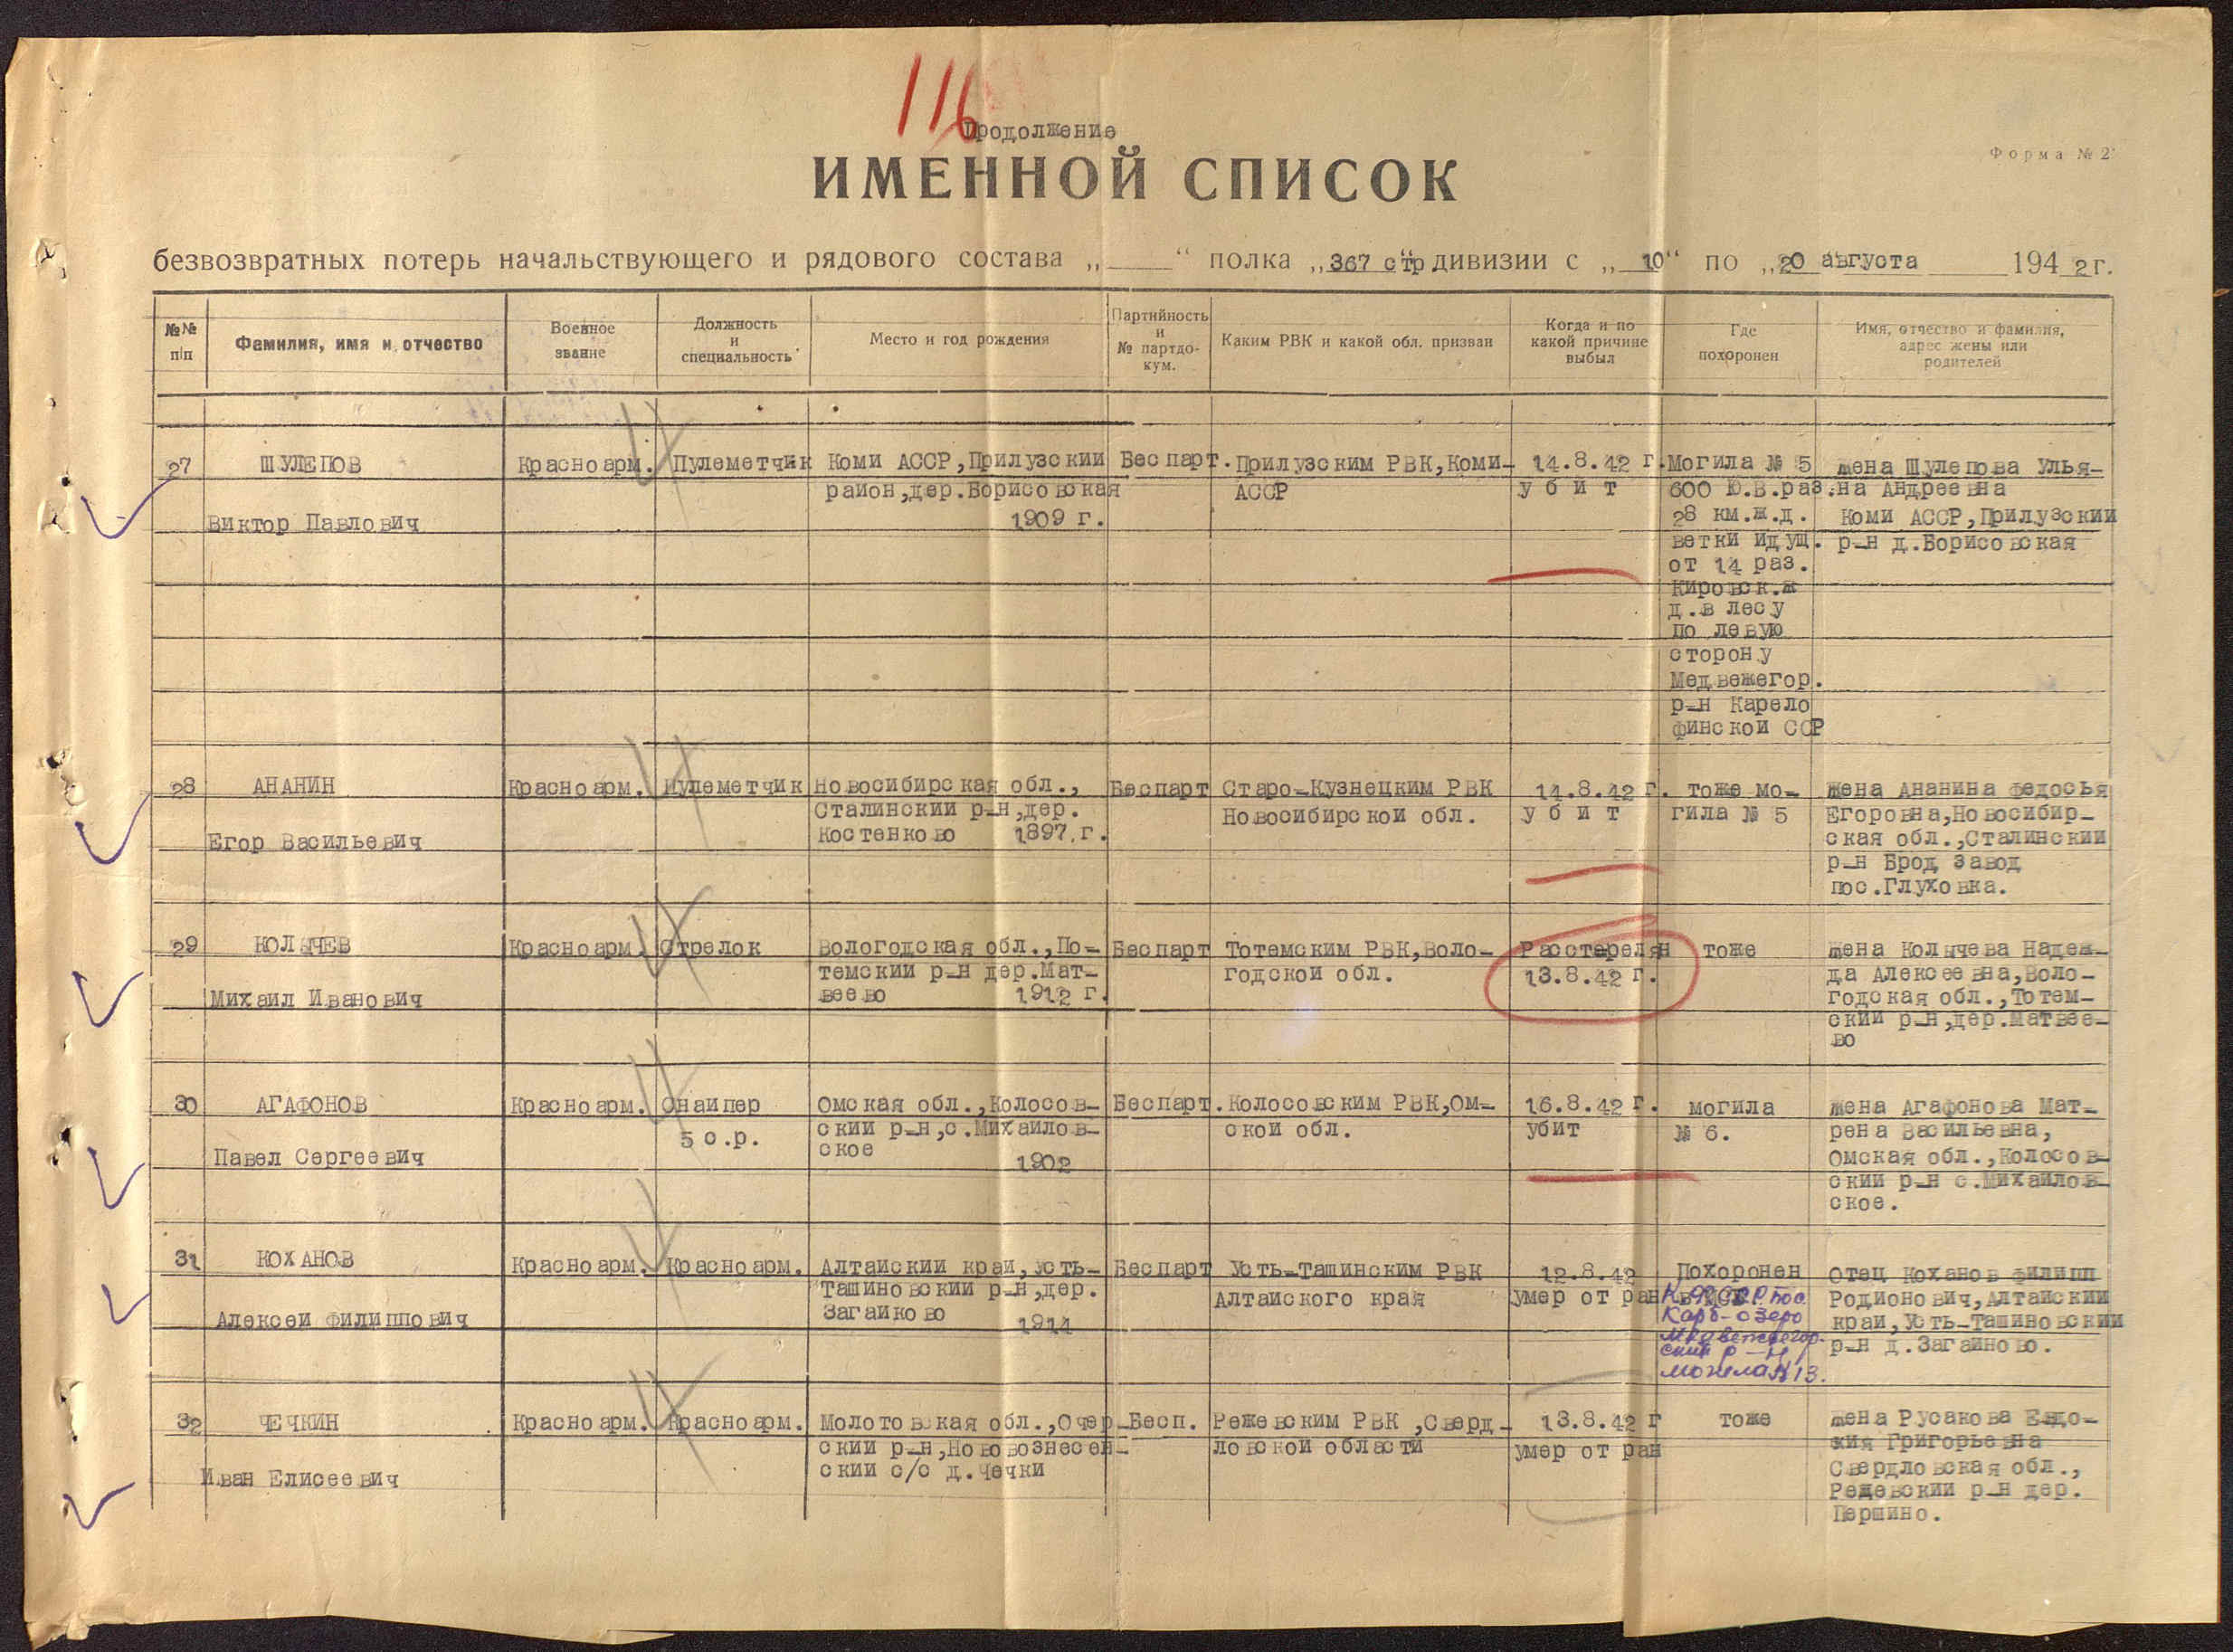 116
Продолжение
Форма № 2
ИМЕННОЙ СПИСОК
безвозвратных потерь начальствующего и рядового состава „ “ полка „367 стр“ дивизии с „10“ по „20 августа 1942 г.
№№ п/п
Фамилия, имя и отчество
Военное звание
Должность и специальность
Место и год рождения
Партийность и № партдокум.
Каким РВК и какой обл. призван
Когда и по какой причине выбыл
Где похоронен
Имя, отчество и фамилия, адрес жены или родителей
27
ШУЛЕПОВ
Виктор Павлович
Красноарм.
Пулеметчик
Коми АССР, Прилузский
район, дер. Борисовская
1909 г.
Беспарт.
Прилузским РВК, Коми-
АССР
14.8.42 г.
убит
Могила № 5
600 Ю.В. раз.
28 км.ж.д.
ветки идущ.
от 14 раз.
Кировск.ж
д. в лесу
по левую
сторону
Медвежегор.
р-н Карело
финской ССР
жена Шулепова Улья-
на Андреевна
Коми АССР, Прилузский
р-н д. Борисовская
28
АНАНИН
Егор Васильевич
Красноарм.
Пулеметчик
Новосибирская обл.,
Сталинский р-н, дер.
Костенково 1897 г.
Беспарт
Старо-Кузнецким РВК
Новосибирской обл.
14.8.42 г.
убит
тоже мо-
гила № 5
жена Ананина Федосья
Егоровна, Новосибир-
ская обл., Сталинский
р-н Брод Завод
пос. Глуховка.
29
КОЛЫЧЕВ
Михаил Иванович
Красноарм.
Стрелок
Вологодская обл., По-
темский р-н дер. Мат-
веево 1912 г.
Беспарт
Тотемским РВК, Воло-
годской обл.
Расстерелян
13.8.42 г.
тоже
жена Колычева Надеж-
да Алексеевна, Воло-
годская обл., Тотем-
ский р-н, дер. Матвее-
во
30
АГАФОНОВ
Павел Сергеевич
Красноарм.
Снайпер
5 с.р.
Омская обл., Колосов-
ский р-н, с. Михайлов-
ское
1902
Беспарт.
Колосовским РВК, Ом-
ской обл.
16.8.42 г.
убит
могила
№ 6.
жена Агафонова Мат-
рена Васильевна,
Омская обл., Колосов-
ский р-н с. Михайлов-
ское.
31
КОХАНОВ
Алексей Филиппович
Красноарм.
Красноарм.
Алтайский край, Усть-
Ташиновский р-н, дер.
Загайково
1914
Беспарт
Усть-Ташинским РВК
Алтайского края
12.8.42
умер от ран
Похоронен
К-ФССР. пос.
Карб-озеро
Медвежегор-
ский р-н
могила № 13.
Отец Коханов Филипп
Родионович, Алтайский
край, Усть-Ташиновский
р-н д. Загайново.
32
ЧЕЧКИН
Иван Елисеевич
Красноарм.
Красноарм.
Молотовская обл., Очер-
ский р-н, Нововознесен-
ский с/с д. Чечки
Бесп.
Режевским РВК, Сверд-
ловской области
13.8.42 г
умер от ран
тоже
жена Русакова Евдо-
кия Григорьевна
Свердловская обл.,
Режевский р-н дер.
Першино.